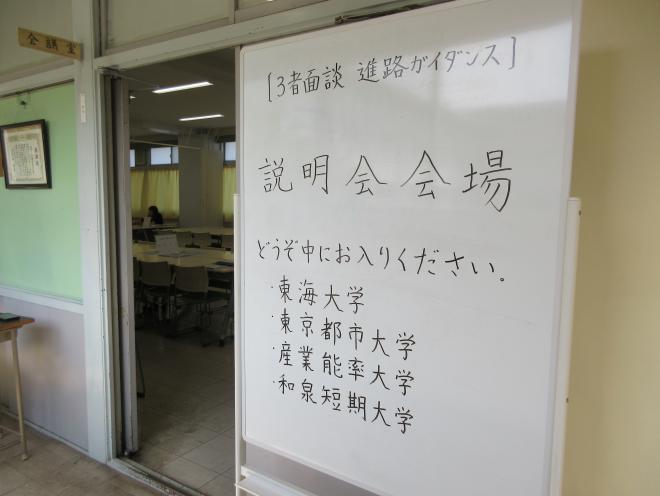 会議室
[3者面談 進路ガイダンス]
説明会会場
どうぞ中にお入りください。
・東海大学
・東京都市大学
・産業能率大学
・和泉短期大学